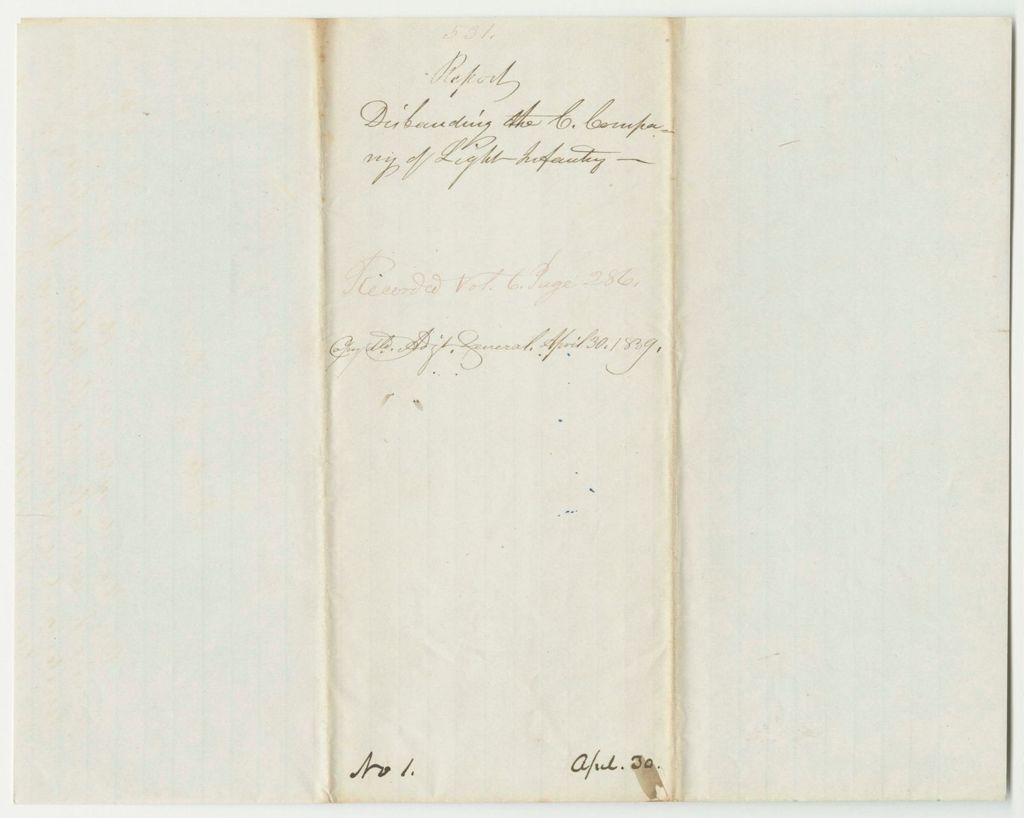 531.
Report
Disbanding the C. Compa-
ny of Light Infantry —
Recorded Vol. 6. Page 286.
Copy Ad. Adjt. General. April 30. 1839.
No 1.
Apl. 30.